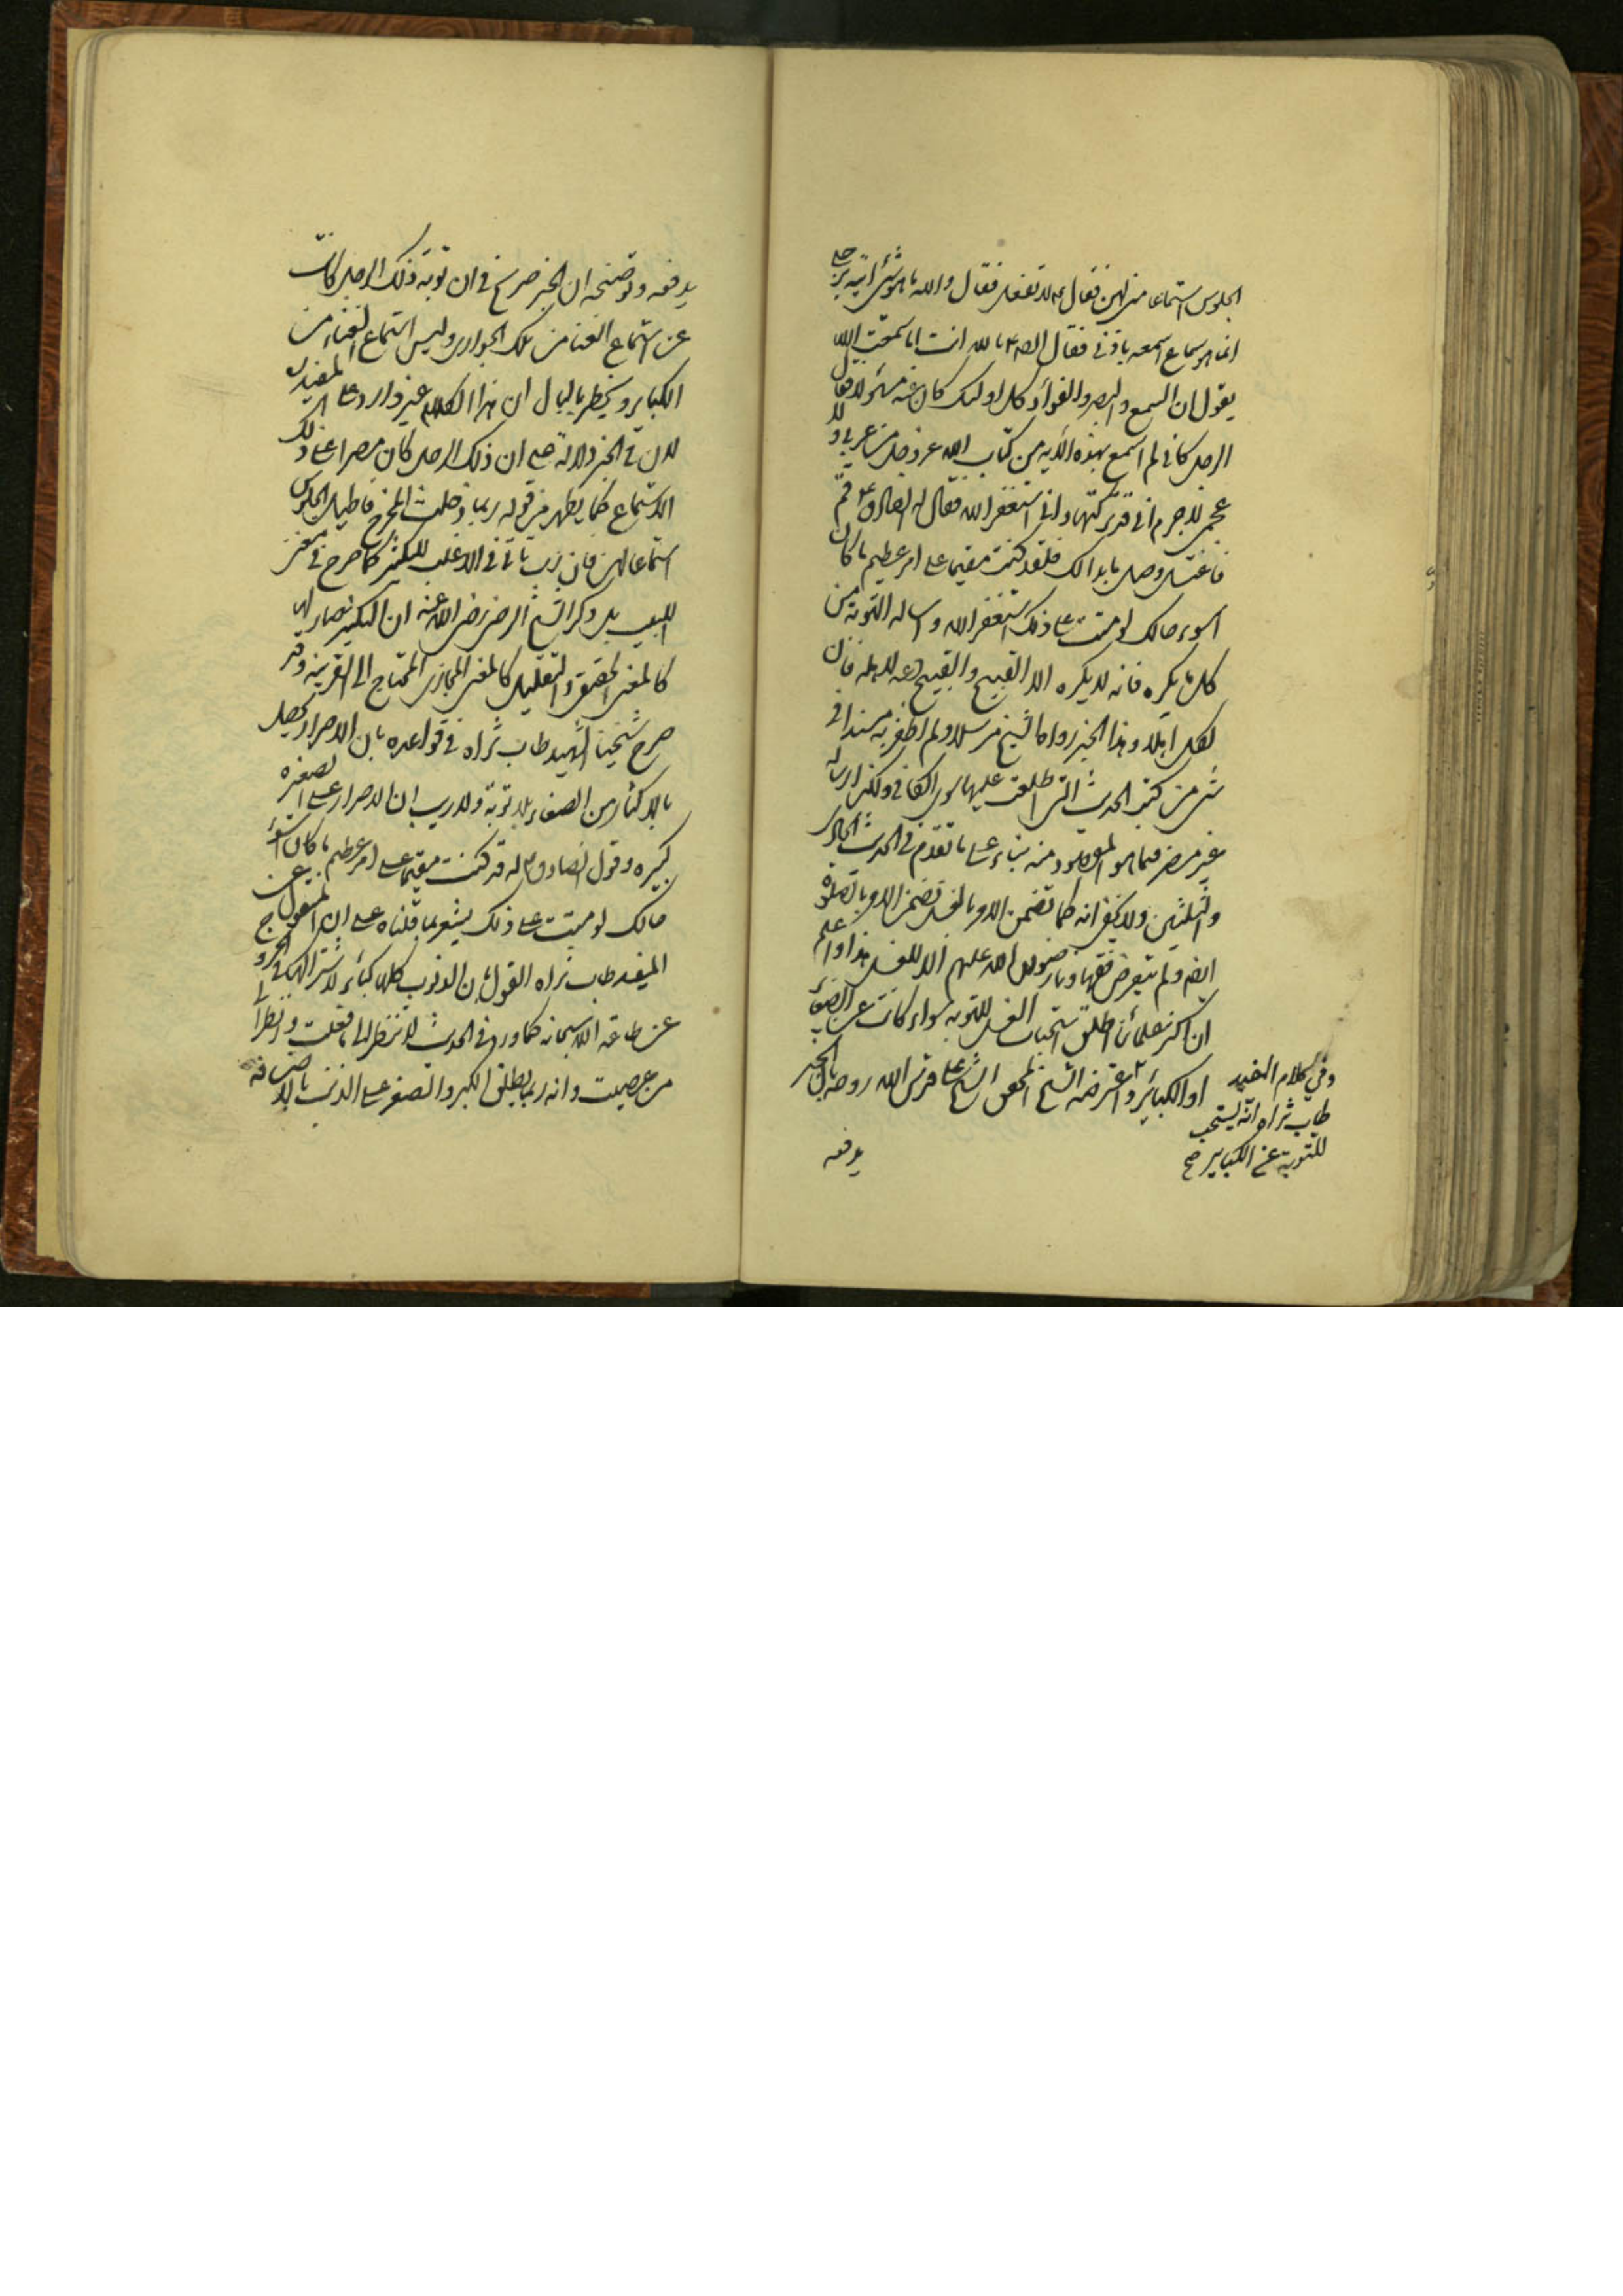 الجلوس استماعا منى لهن فقال ع لا تفعل فقال والله ما هو شئ اتيه برجلى
انما هو سماع اسمعه باذنى فقال الص ع بالله انت اما سمعت الله
يقول ان السمع والبصر والفؤاد كل اولئك كان عنه مسئولا فقال
الرجل كانى لم اسمع بهذه الآية من كتاب الله عز وجل من عربى ولا
عجمى لا جرم انى قد تركتها وانى استغفر الله فقال له الصادق ع قم
فاغتسل وصل ما بدا لك فلقد كنت مقيما على امر عظيم ما كان
اسوء حالك لو مت على ذلك استغفر الله واساله التوبة من
كل ما يكره فانه لا يكره الا القبيح والقبيح دعه لاهله فان
لكل اهلا وهذا الخبر رواه الشيخ مرسلا ولم اظفر به مسندا فى
شئ من كتب الحديث التى اطلعت عليها سوى الكافى ولكن ارساله
غير مضر فيما هو المقصود منه بناء على ما تقدم فى الحديث الحادى
والثلثين ولا يخفى انه كما تضمن الامر بالغسل تضمن الامر بالصلوة
ايضا ولم يتعرض فقهاؤنا رضوان الله عليهم الا للغسل هذا واعلم
ان اكثر علمائنا اطلق استحباب الغسل للتوبة سواء كانت عن الصغائر
او الكبائر واعترضه الشيخ المحقق الشيخ على قدس الله روحه بان الخبر
وفي كلام المفيد
طاب ثراه انه يستحب
للتوبة عن الكبائر صح
يدفعه
يدفعه وتوضيحه ان الخبر صريح فى ان توبة ذلك الرجل كانت
عن استماع الغنا من تلك الجوارى وليس استماع الغناء من
الكبائر ويخطر بالبال ان هذا الكلام غير وارد على المفيد
لان فى الخبر دلالة على ان ذلك الرجل كان مصرا على ذلك
الاستماع كما يظهر من قوله ربما دخلت المخرج فاطيل الجلوس
استماعا لهن فان رب تاتى فى الاغلب للتكثير كما صرح فى مغنى
اللبيب بل ذكر الشيخ الرضى رضى الله عنه ان التكثير صار لها
كالمعنى الحقيقى والتقليل كالمعنى المجازى المحتاج الى القرينة وقد
صرح شيخنا الشهيد طاب ثراه فى قواعده بان الاصرار يحصل
بالاكثار من الصغاير بلا توبة ولا ريب ان الاصرار على الصغيرة
كبيرة وقول الصادق ع له قد كنت مقيما على امر عظيم ما كان اسوء
حالك لو مت على ذلك يشعر بما قلناه على ان المنقول عن
المفيد طاب ثراه القول بان الذنوب كلها كبائر لاشتراكها فى الخروج
عن طاعة الله سبحانه كما ورد فى الحديث لا تنظر الى ما فعلت وانظر الى
من عصيت وانه ربما يطلق الكبر والصغر على الذنب بالاضافة